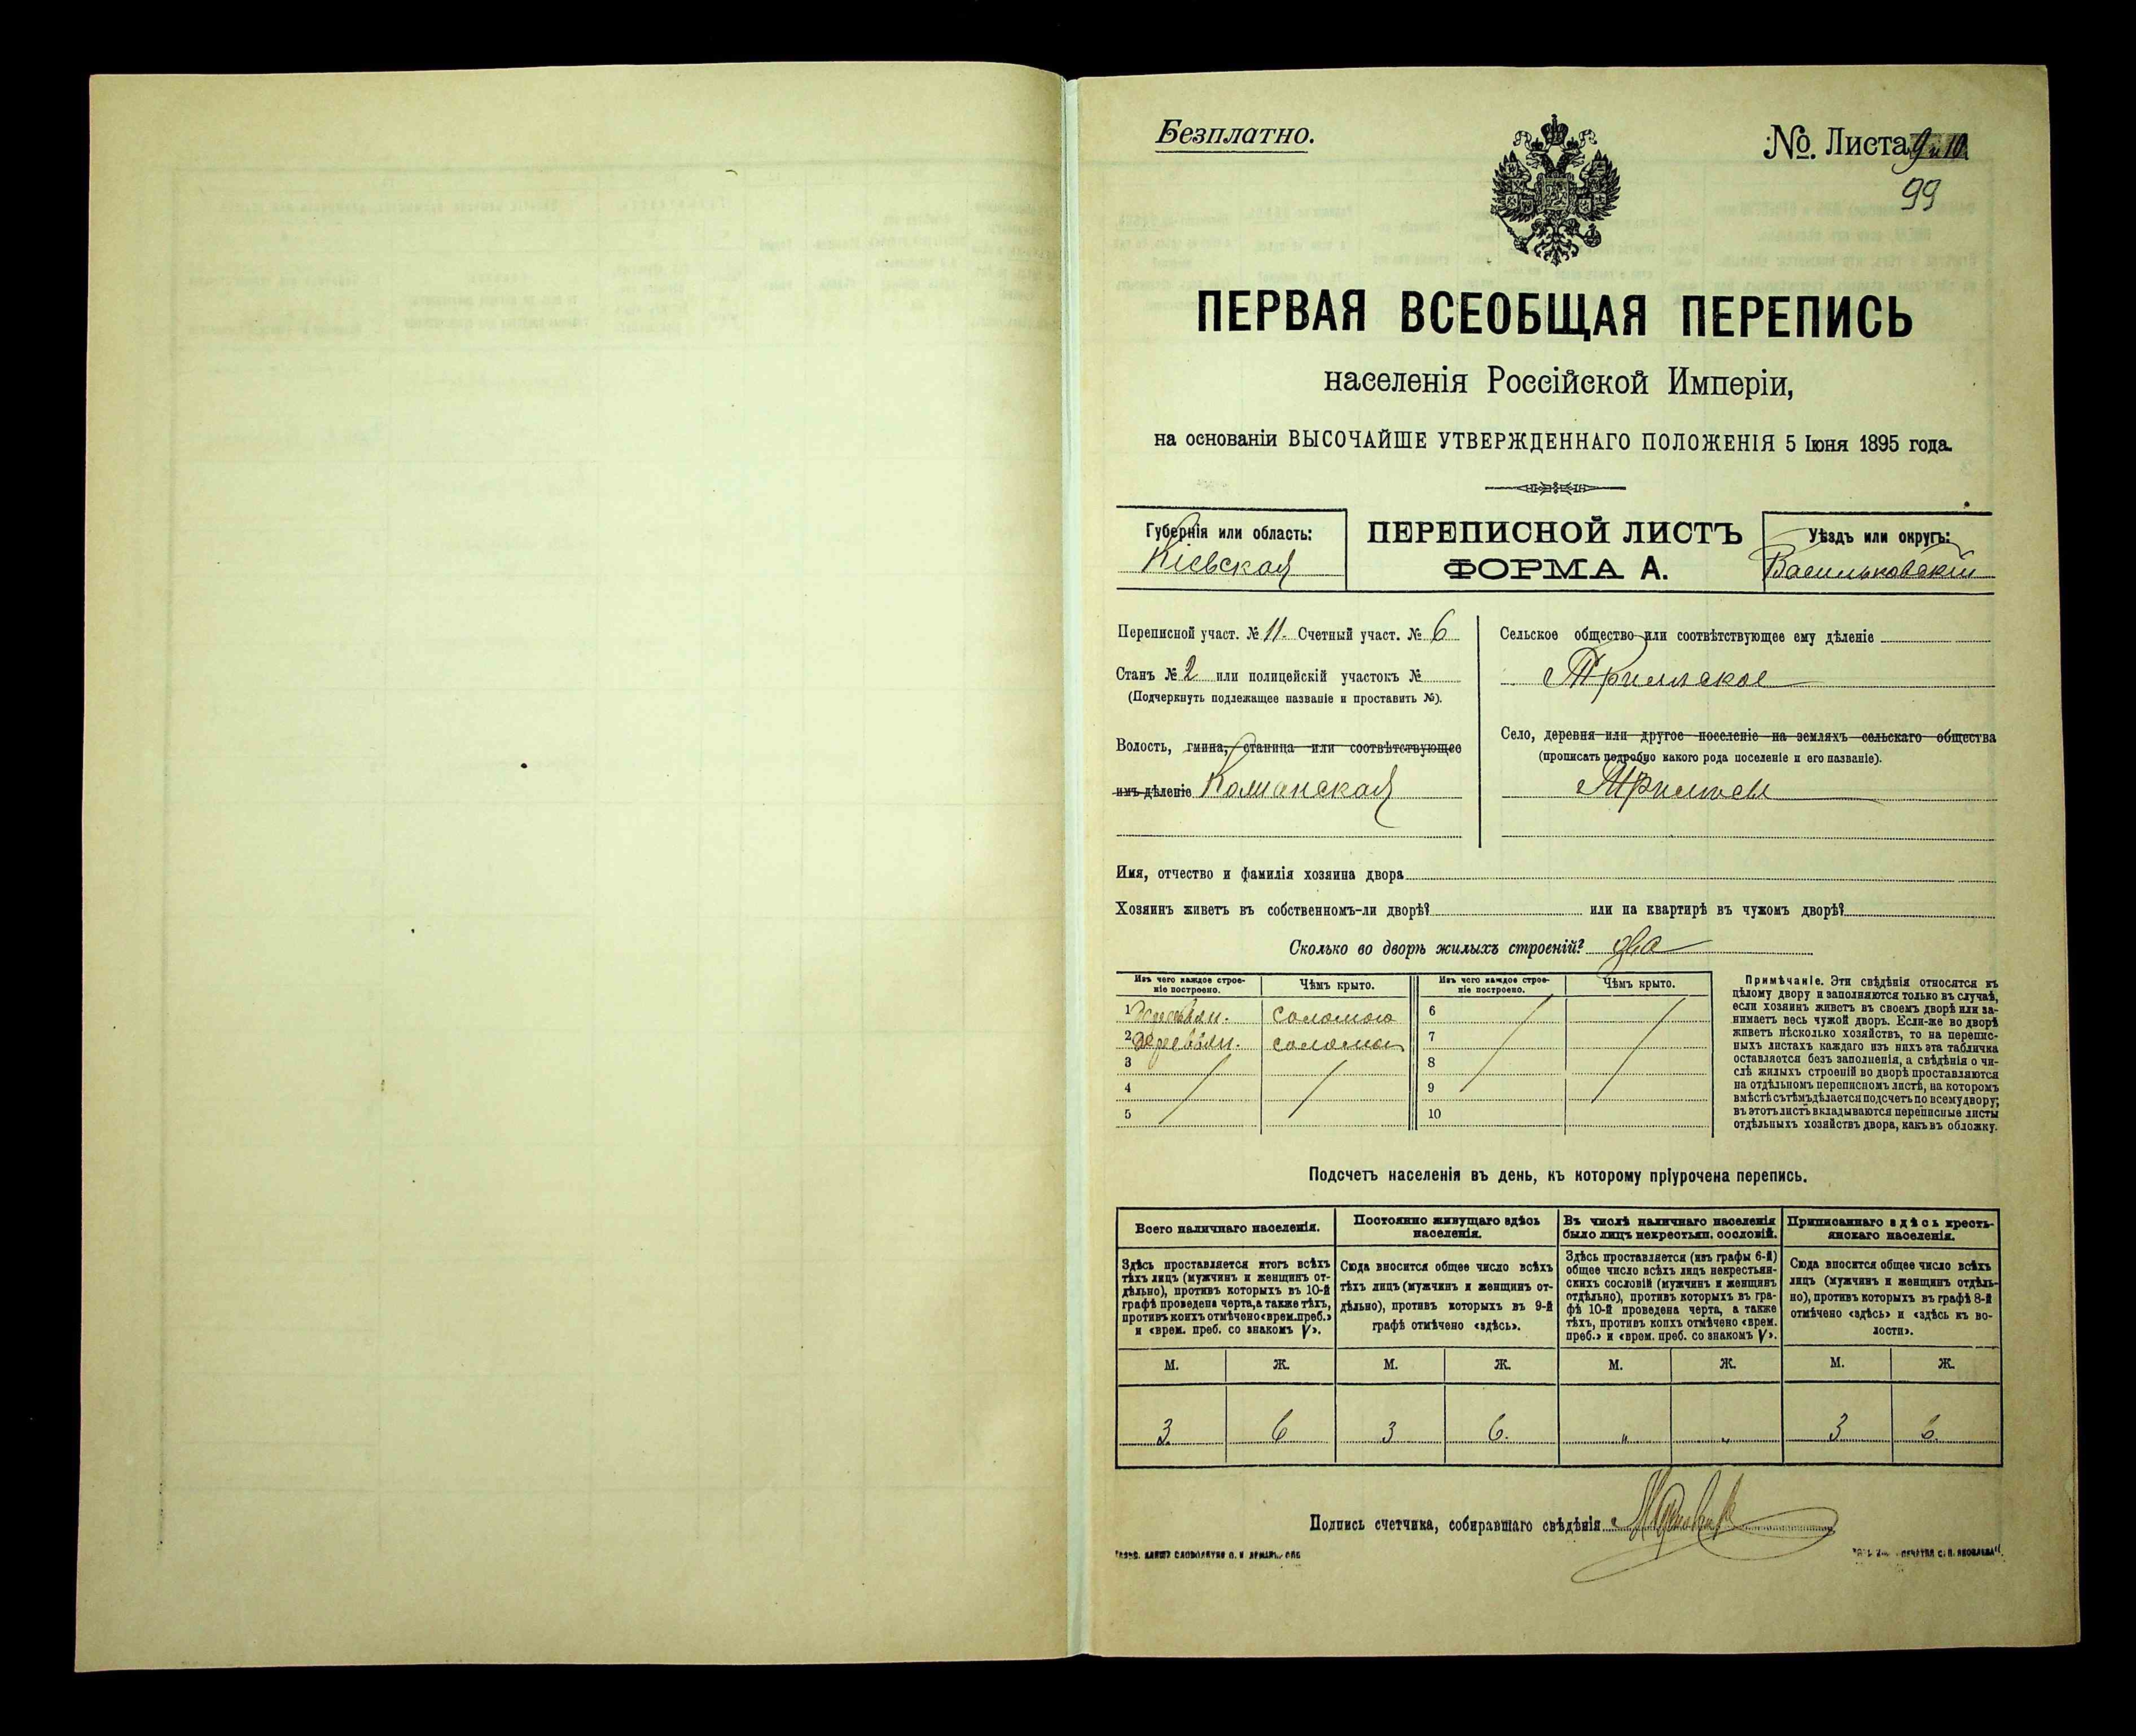 Безплатно.
№. Листа 9 и 10
99
ПЕРВАЯ ВСЕОБЩАЯ ПЕРЕПИСЬ
населенія Россійской Имперіи,
на основаніи ВЫСОЧАЙШЕ УТВЕРЖДЕННАГО ПОЛОЖЕНІЯ 5 Іюня 1895 года.
Губернія или область:
Кіевская
ПЕРЕПИСНОЙ ЛИСТЪ
ФОРМА А.
Уѣздъ или округъ:
Васильковскій
Переписной участ. № 11. Счетный участ. № 6
Станъ № 2 или полицейскій участокъ №
(Подчеркнуть подлежащее названіе и проставить №).
Волость, гмина, станица или соотвѣтствующее
имъ дѣленіе
Сельское общество или соотвѣтствующее ему дѣленіе
Село, деревня или другое поселеніе на земляхъ сельскаго общества
(прописать подробно какого рода поселеніе и его названіе).
Имя, отчество и фамилія хозяина двора
Хозяинъ живетъ въ собственномъ-ли дворѣ? или на квартирѣ въ чужомъ дворѣ?
Сколько во дворѣ жилыхъ строеній? два
Изъ чего каждое строе-
ніе построено.
Чѣмъ крыто.
Изъ чего каждое строе-
ніе построено.
Чѣмъ крыто.
1 деревян. соломою 6
2 деревян. соломою 7
3 8
4 9
5 10
Примѣчаніе. Эти свѣдѣнія относятся къ
цѣлому двору и заполняются только въ случаѣ,
если хозяинъ живетъ въ своемъ дворѣ или за-
нимаетъ весь чужой дворъ. Если-же во дворѣ
живетъ нѣсколько хозяйствъ, то на перепис-
ныхъ листахъ каждаго изъ нихъ эта табличка
оставляется безъ заполненія, а свѣдѣнія о чи-
слѣ жилыхъ строеній во дворѣ проставляются
на отдѣльномъ переписномъ листѣ, на которомъ
вмѣстѣ съ тѣмъ дѣлается подсчетъ по всему двору;
въ этотъ листъ вкладываются переписные листы
отдѣльныхъ хозяйствъ двора, какъ въ обложку.
Подсчетъ населенія въ день, къ которому пріурочена перепись.
Всего наличнаго населенія.
Здѣсь проставляется итогъ всѣхъ
тѣхъ лицъ (мужчинъ и женщинъ от-
дѣльно), противъ которыхъ въ 10-й
графѣ проведена черта, а также тѣхъ,
противъ коихъ отмѣчено «врем. преб.»
и «врем. преб. со знакомъ V».
Постоянно живущаго здѣсь
населенія.
Сюда вносится общее число всѣхъ
тѣхъ лицъ (мужчинъ и женщинъ от-
дѣльно), противъ которыхъ въ 9-й
графѣ отмѣчено «здѣсь».
Въ числѣ наличнаго населенія
было лицъ некрестьян. сословій.
Здѣсь проставляется (изъ графы 6-й)
общее число всѣхъ лицъ некрестьян-
скихъ сословій (мужчинъ и женщинъ
отдѣльно), противъ которыхъ въ гра-
фѣ 10-й проведена черта, а также
тѣхъ, противъ коихъ отмѣчено «врем.
преб.» и «врем. преб. со знакомъ V».
Приписаннаго здѣсь кресть-
янскаго населенія.
Сюда вносится общее число всѣхъ
лицъ (мужчинъ и женщинъ отдѣль-
но), противъ которыхъ въ графѣ 8-й
отмѣчено «здѣсь» и «здѣсь къ во-
лости».
М. Ж. М. Ж. М. Ж. М. Ж.
3 6 3 6. " " 3 6.
Подпись счетчика, собиравшаго свѣдѣнія